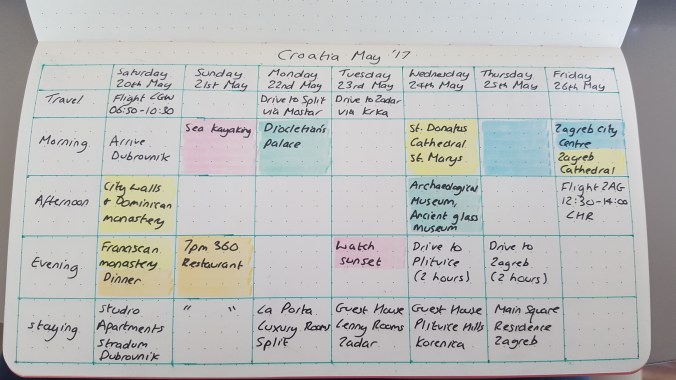 Croatia May '17
Saturday
20th May
Sunday
21st May
Monday
22nd May
Tuesday
23rd May
Wednesday
24th May
Thursday
25th May
Friday
26th May
Travel
Flight LGW
06:50-10:30
Drive to Split
via Mostar
Drive to Zadar
via Krka
Morning
Arrive
Dubrovnik
Sea kayaking
Diocletian's
Palace
St. Donatus
Cathedral
St. Marys
Zagreb City
Centre
Zagreb
Cathedral
Afternoon
City walls
& Dominican
monastery
Archaeological
Museum,
Ancient glass
museum
Flight ZAG
12:30-14:00
LHR
Evening
Franciscan
monastery
Dinner
7pm 360
Restaurant
Watch
sunset
Drive to
Plitvice
(2 hours)
Drive to
Zagreb
(2 hours)
Staying
Studio
Apartments
Stradum
Dubrovnik
" "
La Porta
Luxury Rooms
Split
Guest House
Lenny Rooms
Zadar
Guest House
Plitvice Hills
Korenica
Main Square
Residence
Zagreb